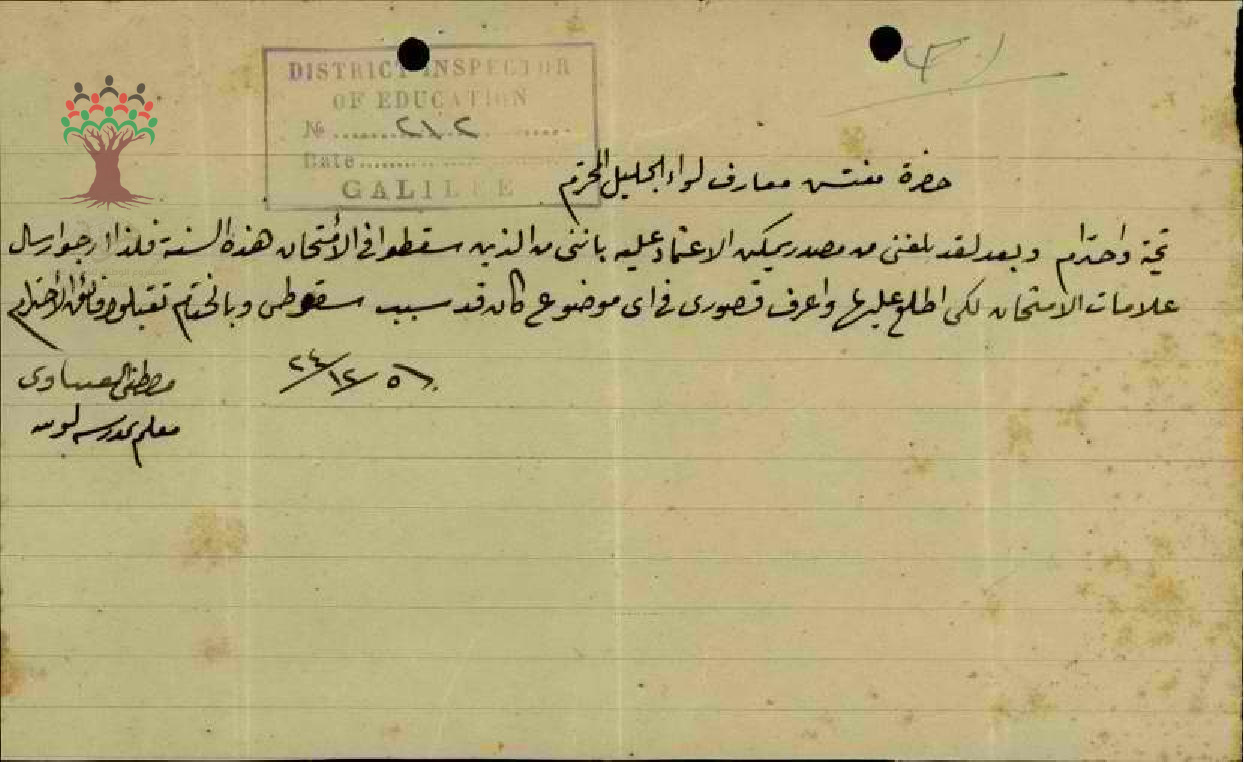 DISTRICT INSPECTOR
OF EDUCATION
№ ٢١٠٢
Date
GALILEE
حضرة مفتش معارف لواء الجليل المحترم
تحية واحترام وبعد لقد بلغني من مصدر يمكن الاعتماد عليه بانني من الذين سقطوا في الأمتحان هذه السنة فلذا ارجو ارسال
علامات الامتحان لكي اطلع عليها واعرف قصوري في اي موضوع كان قد سبب سقوطي وبالختام تقبلوا فائق الأحترام
٢٤/١٢/٥٦
مصطفى العيساوي
معلم مدرسة